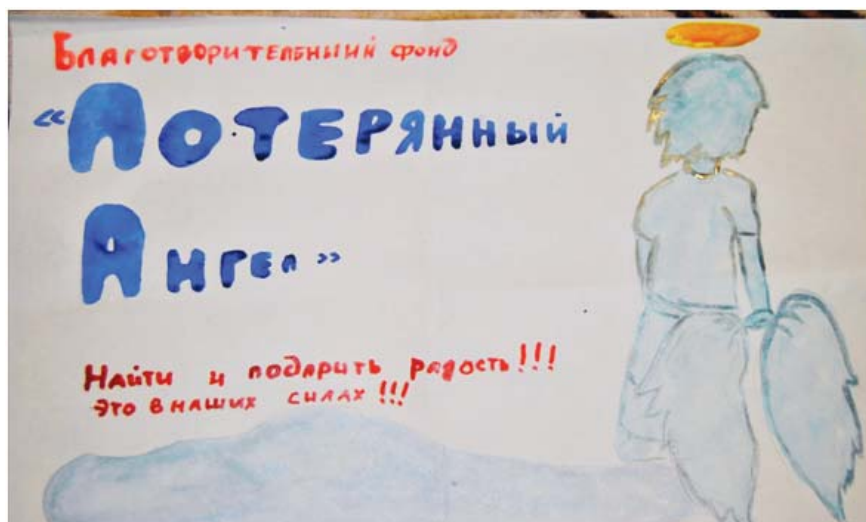 Благотворительный фонд
«Потерянный
Ангел»
Найти и подарить радость!!!
Это в наших силах!!!